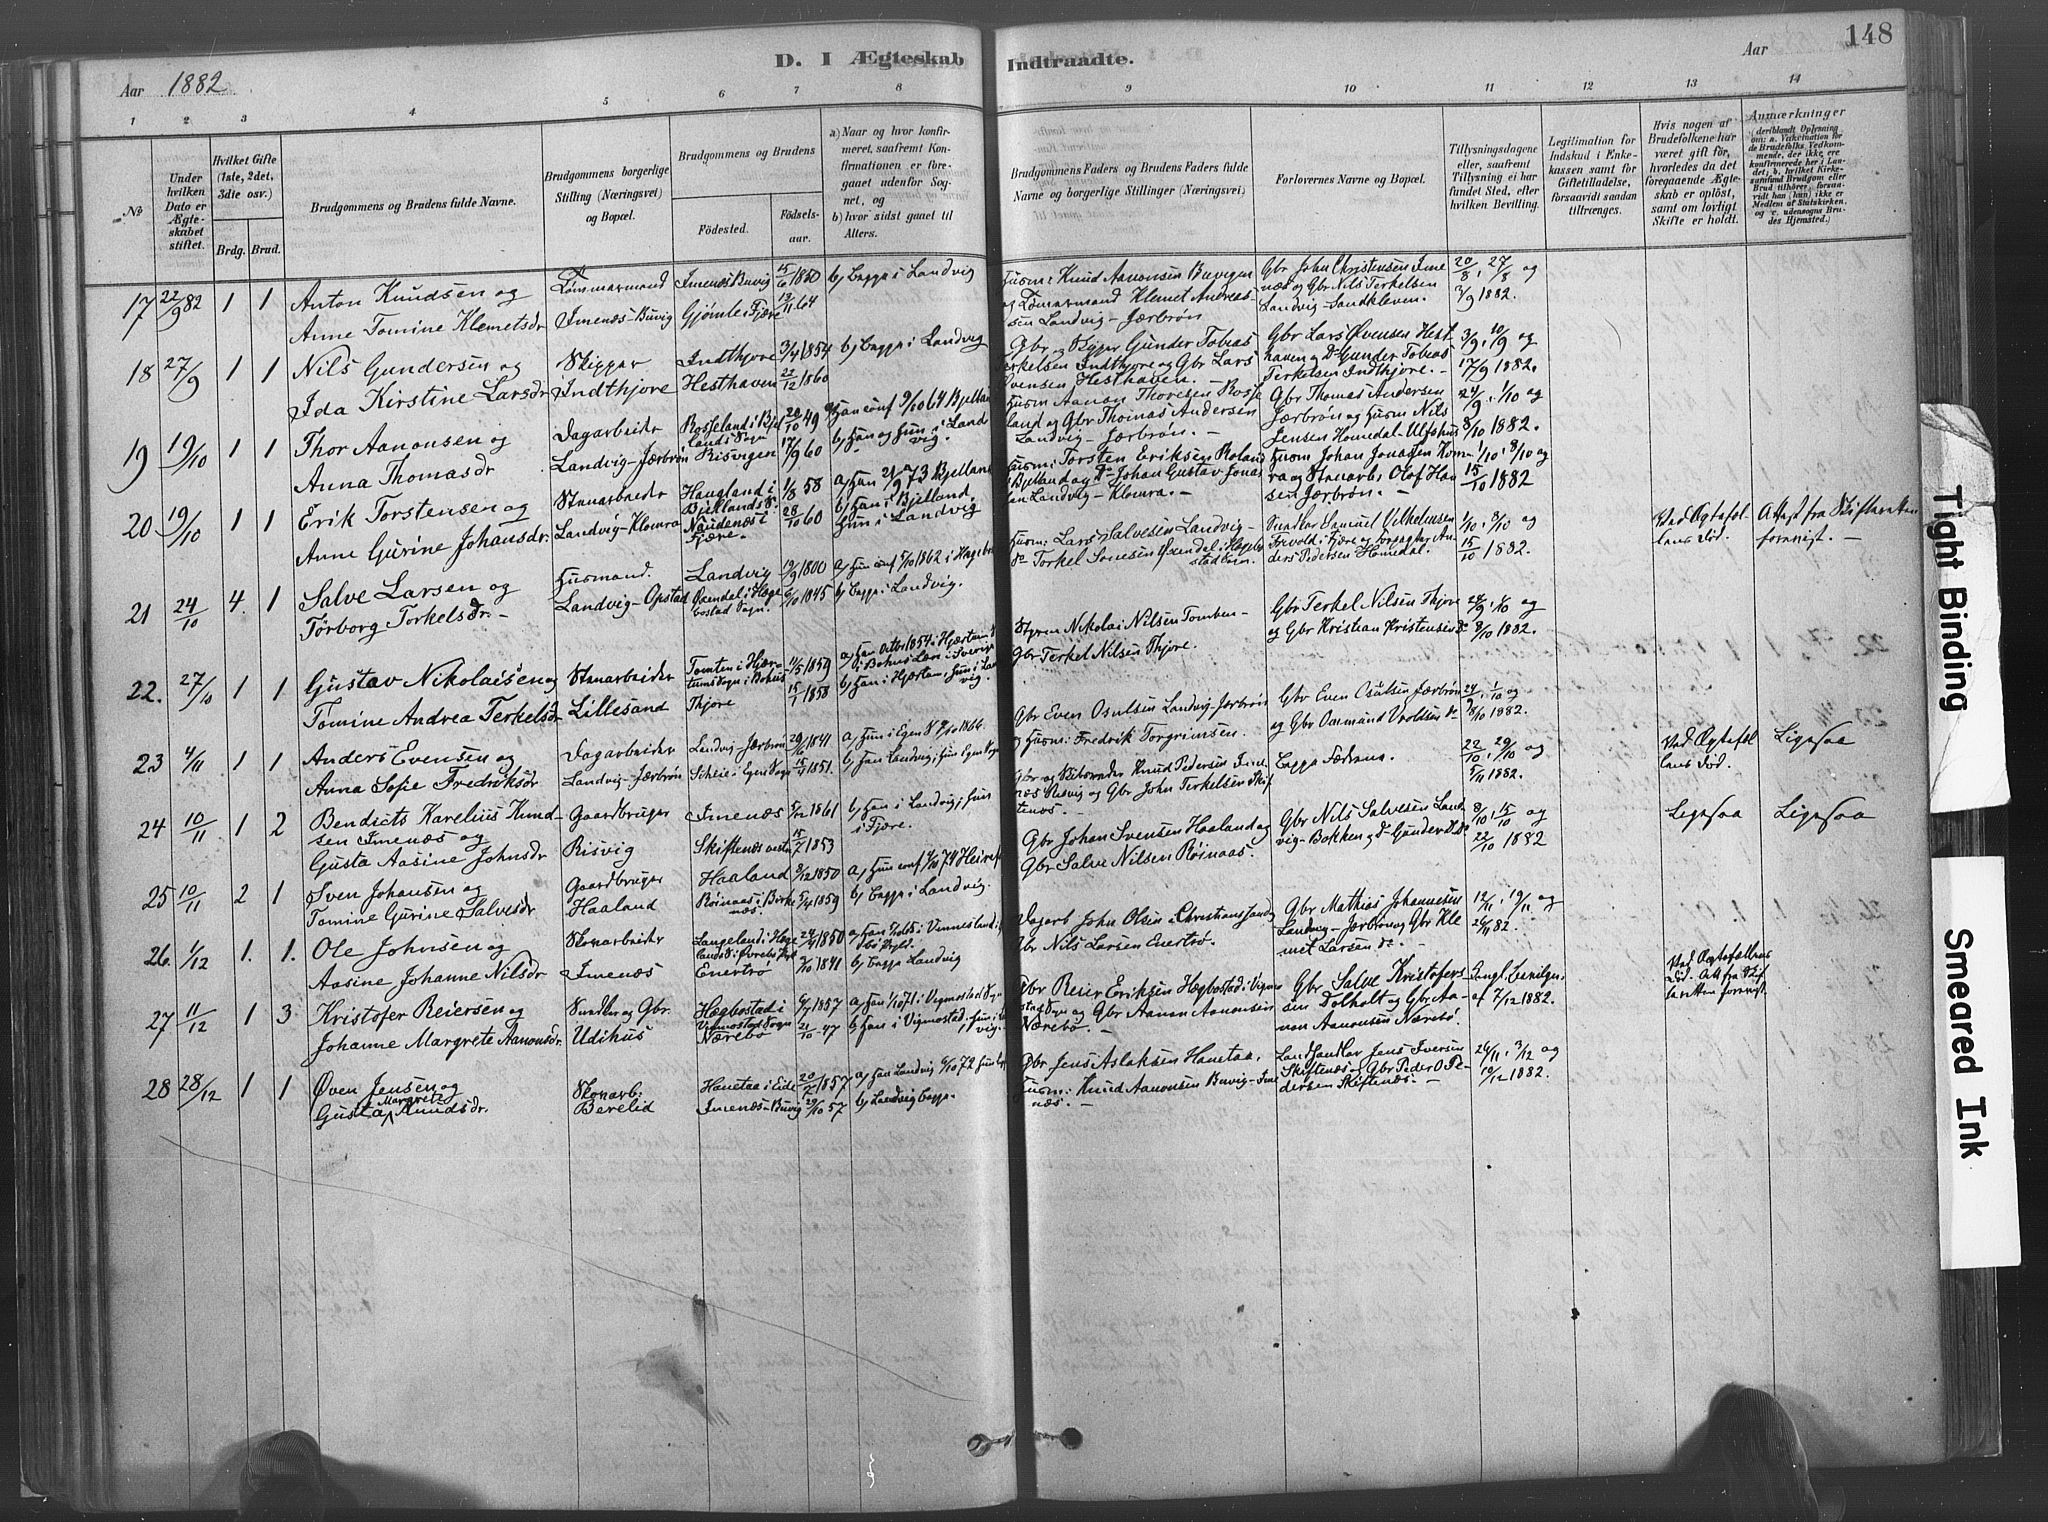 148
D. I Ægteskab Indtraadte.
Aar 1882
Aar
1 2 3 4 5 6 7 8 9 10 11 12 13 14
No
Under hvilken Dato er Ægteskabet stiftet.
Hvilket Gifte (1ste, 2det, 3die osv.)
Brdg. Brud.
Brudgommens og Brudens fulde Navne.
Brudgommens borgerlige Stilling (Næringsvei) og Bopæl.
Brudgommens og Brudens
Fødested.
Fødselsaar.
a) Naar og hvor konfirmeret, saafremt Konfirmationen er foregaaet udenfor Sognet, og
b) hvor sidst gaaet til Alters.
Brudgommens Faders og Brudens Faders fulde Navne og borgerlige Stillinger (Næringsvei)
Forlovernes Navne og Bopæl.
Tillysningsdagene eller, saafremt Tillysning ei har fundet Sted, efter hvilken Bevilling.
Legitimation for Indskud i Enkekassen samt for Giftetilladelse, forsaavidt saadan tiltrænges.
Hvis nogen af Brudefolkene har været gift før, hvorledes da det foregaaende Ægteskab er opløst, samt om lovligt Skifte er holdt.
Anmærkninger
17 22/9 82 1 1 Anton Knudsen og Tømmermand Imenæs Buvig 15/6 1860 b, Begge i Landvig
Anne Tomine Klemetsdr Imenæs-Buvig Gjømle i Fjære 13/11 64
Husm: Knud Aanonsen Buvigen og Tømarmand Klemet Andreassen Landvig-Jærbrøn
Gbr John Christensen Imenæs og Gbr Nils Terkelsen Landvig-Sandkleven.
20/8, 27/8 og 3/9 1882.
18 27/9 1 1 Nils Gundersen og Skipper Indthjore 3/4 1854 b, Begge i Landvig
Ida Kirstine Larsdr Indthjore Hesthaven 22/12 1860
Gunder Tobias Terkelsen Indthjore og Gbr Lars Øvensen Hesthaven. -
Gbr Lars Øvensen Hesthaven og Do Gunder Tobias Terkelsen Indthjore. -
3/9, 10/9 og 17/9 1882.
19 19/10 1 1 Thor Aanonsen og Dagarbeider 20/10 49 Han conf 9/10 64 Bjelland
Anna Thomasdr Landvig-Jærbrøn Risvigen 17/9 60 b, Han og Hun i Landvig.
Husm Aanon og Gbr Thomas Andersen Landvig-Jærbrøn. -
Gbr Thomas Andersen Jærbrøn og Husm Nils Jensen Homedal-
24/9, 1/10 og 8/10 1882.
20 19/10 1 1 Erik Torstensen og Stenarbeider Haugland i Bjellands S. 1/8 58 a, Han 21/9 73 Bjelland
Anne Gurine Johansdr. Landvig-Klomra Naudenæs i Fjære. 28/10 60 b, Han i Bjelland. Hun i Landvig
Husm: Torsten Eriksen i Bjelland og Do Johan Gustav Landvig-Klomra. -
Husm Johan Jonasen Komra og Stenarb. Olof Hansen Jærbrøn. -
1/10, 8/10 og 15/10 1882
21 24/10 4 1 Salve Larsen og Husmand. Landvig 19/9 1800 a, Hun conf 5/10 1862 i Hægeb
Tørborg Torkelsdr. - Landvig-Opstad Oxendel i Hægebostad Sogn. 6/10 1845 b, Begge i Landvig.
Husm: Lars Salvesen Landvig-
Do Torkel Oxendel i Hægebostad Sogn.
Samuel Vilhelmsen i Fjære og Anders Pedersen Homedal.
1/10, 8/10 og 15/10 1882.
Ved Ægtefællens død. Attest fra Skifteretten forevist. -
22. 27/10 1 1 Gustav Nikolaisen og Stenarbeider Tomten i Hjærtums Sogn i Bohus 11/5 1859
Tomine Andrea Terkelsdr Lillesand Thjore 15/1 1858 b, Han i Hjærtum, Hun i Landvig.
Nikolai Nilsen Tomten-
Gbr Terkel Nilsen Thjore.
Gbr Terkel Nilsen Thjore og Gbr Kristian Kristensen Do
24/9, 1/10 og 8/10 1882.
23 4/11 1 1 Anders Evensen og Dagarbeider Landvig-Jærbrøn 29/6 1841
Anna Sofie Fredriksdr Landvig-Jærbrøn i Egen Sogn 1851.
Gbr Even Osulsen Landvig-Jærbrøn
og Husm: Fredrik Torgrimsen.
Gbr Even Osulsen Jærbrøn og Gbr Ommund Do
24/9, 1/10 og 8/10 1882.
24 10/11 1 2 Bendicts Karelius Knudsen Imenæs og Gaardbruger Imenæs 5/12 1861 b, Han i Landvig, Hun i Fjære.
Gusta Aasine Johnsdr Risvig Skiftenæs 15/7 1853
Gbr og Knud Pedersen Imenæs Risvig og Gbr John Terkelsen Skiftenæs.
Begge Fædrene.
22/10, 29/10 og 5/11 1882.
Ved Ægtefællens død. Ligesaa
25 10/11 2 1 Sven Johansen og Gaardbruger Haaland 8/12 1850
Tomine Gurine Salvesdr Haaland Røinaas i Birkenæs. 5/4 1859 b, Begge i Landvig.
Gbr Johan Svensen Haaland og
Gbr Salve Nilsen Røinaas.
Gbr Nils Salvesen Landvig-Bokken og Do Gunder Do
8/10, 15/10 og 22/10 1882
Ligesaa Ligesaa
26. 1/12 1. 1. Ole Johnsen og Skoarbeider 24/4 1850
Aasine Johanne Nilsdr Imenæs Enertrø 7/10 1841 b, Begge Landvig
Dagarb John Olsen i Christianssand og
Gbr Nils Larsen Enertrø.
Gbr Mathias Johannesen Landvig-Jærbrøn og Gbr Klemet Larsen Do. -
12/11, 19/11 og 26/11 82.
27 11/12 1 3 Kristofer Reiersen og og Gbr. Hægbostad i Vigmostad Sogn 9/7 1857 a, Han 1/10 71 i Vigmostad Sogn
Johanne Margrete Aanonsdr. Udihus Nærebø 21/10 47 b, Han i Vigmostad, Hun i Landvig.
Gbr Reier Eriksen Hægbostad i Vigmostad Sogn og Gbr Aanon Aanonsen Nærebø. -
Gbr Salve Kristofersen Dolholt og Gbr Aanon Aanonsen Nærebø.
Kongl. Bevilgn. af 7/12 1882.
Ved Ægtefællens død. Att fra Skifteretten forevist.
28 28/12 1 1 Øven Jensen og Skoarb: Hanetaa i Eide 20/7 1857 a, Han Landvig 6/10 72
Gusta Margrete Knudsdr. Berelid Imenæs-Buvig 29/10 57 b, Landvig begge.
Gbr Jens Aslaksen Hanetaa,
Husm: Knud Aanonsen Buvig-Imenæs. -
Landhandler Jens Iversen Skiftenæs og Gbr Peder O Pedersen Skiftenæs. -
26/11, 3/12 og 10/12 1882.
Tight Binding
Smeared Ink